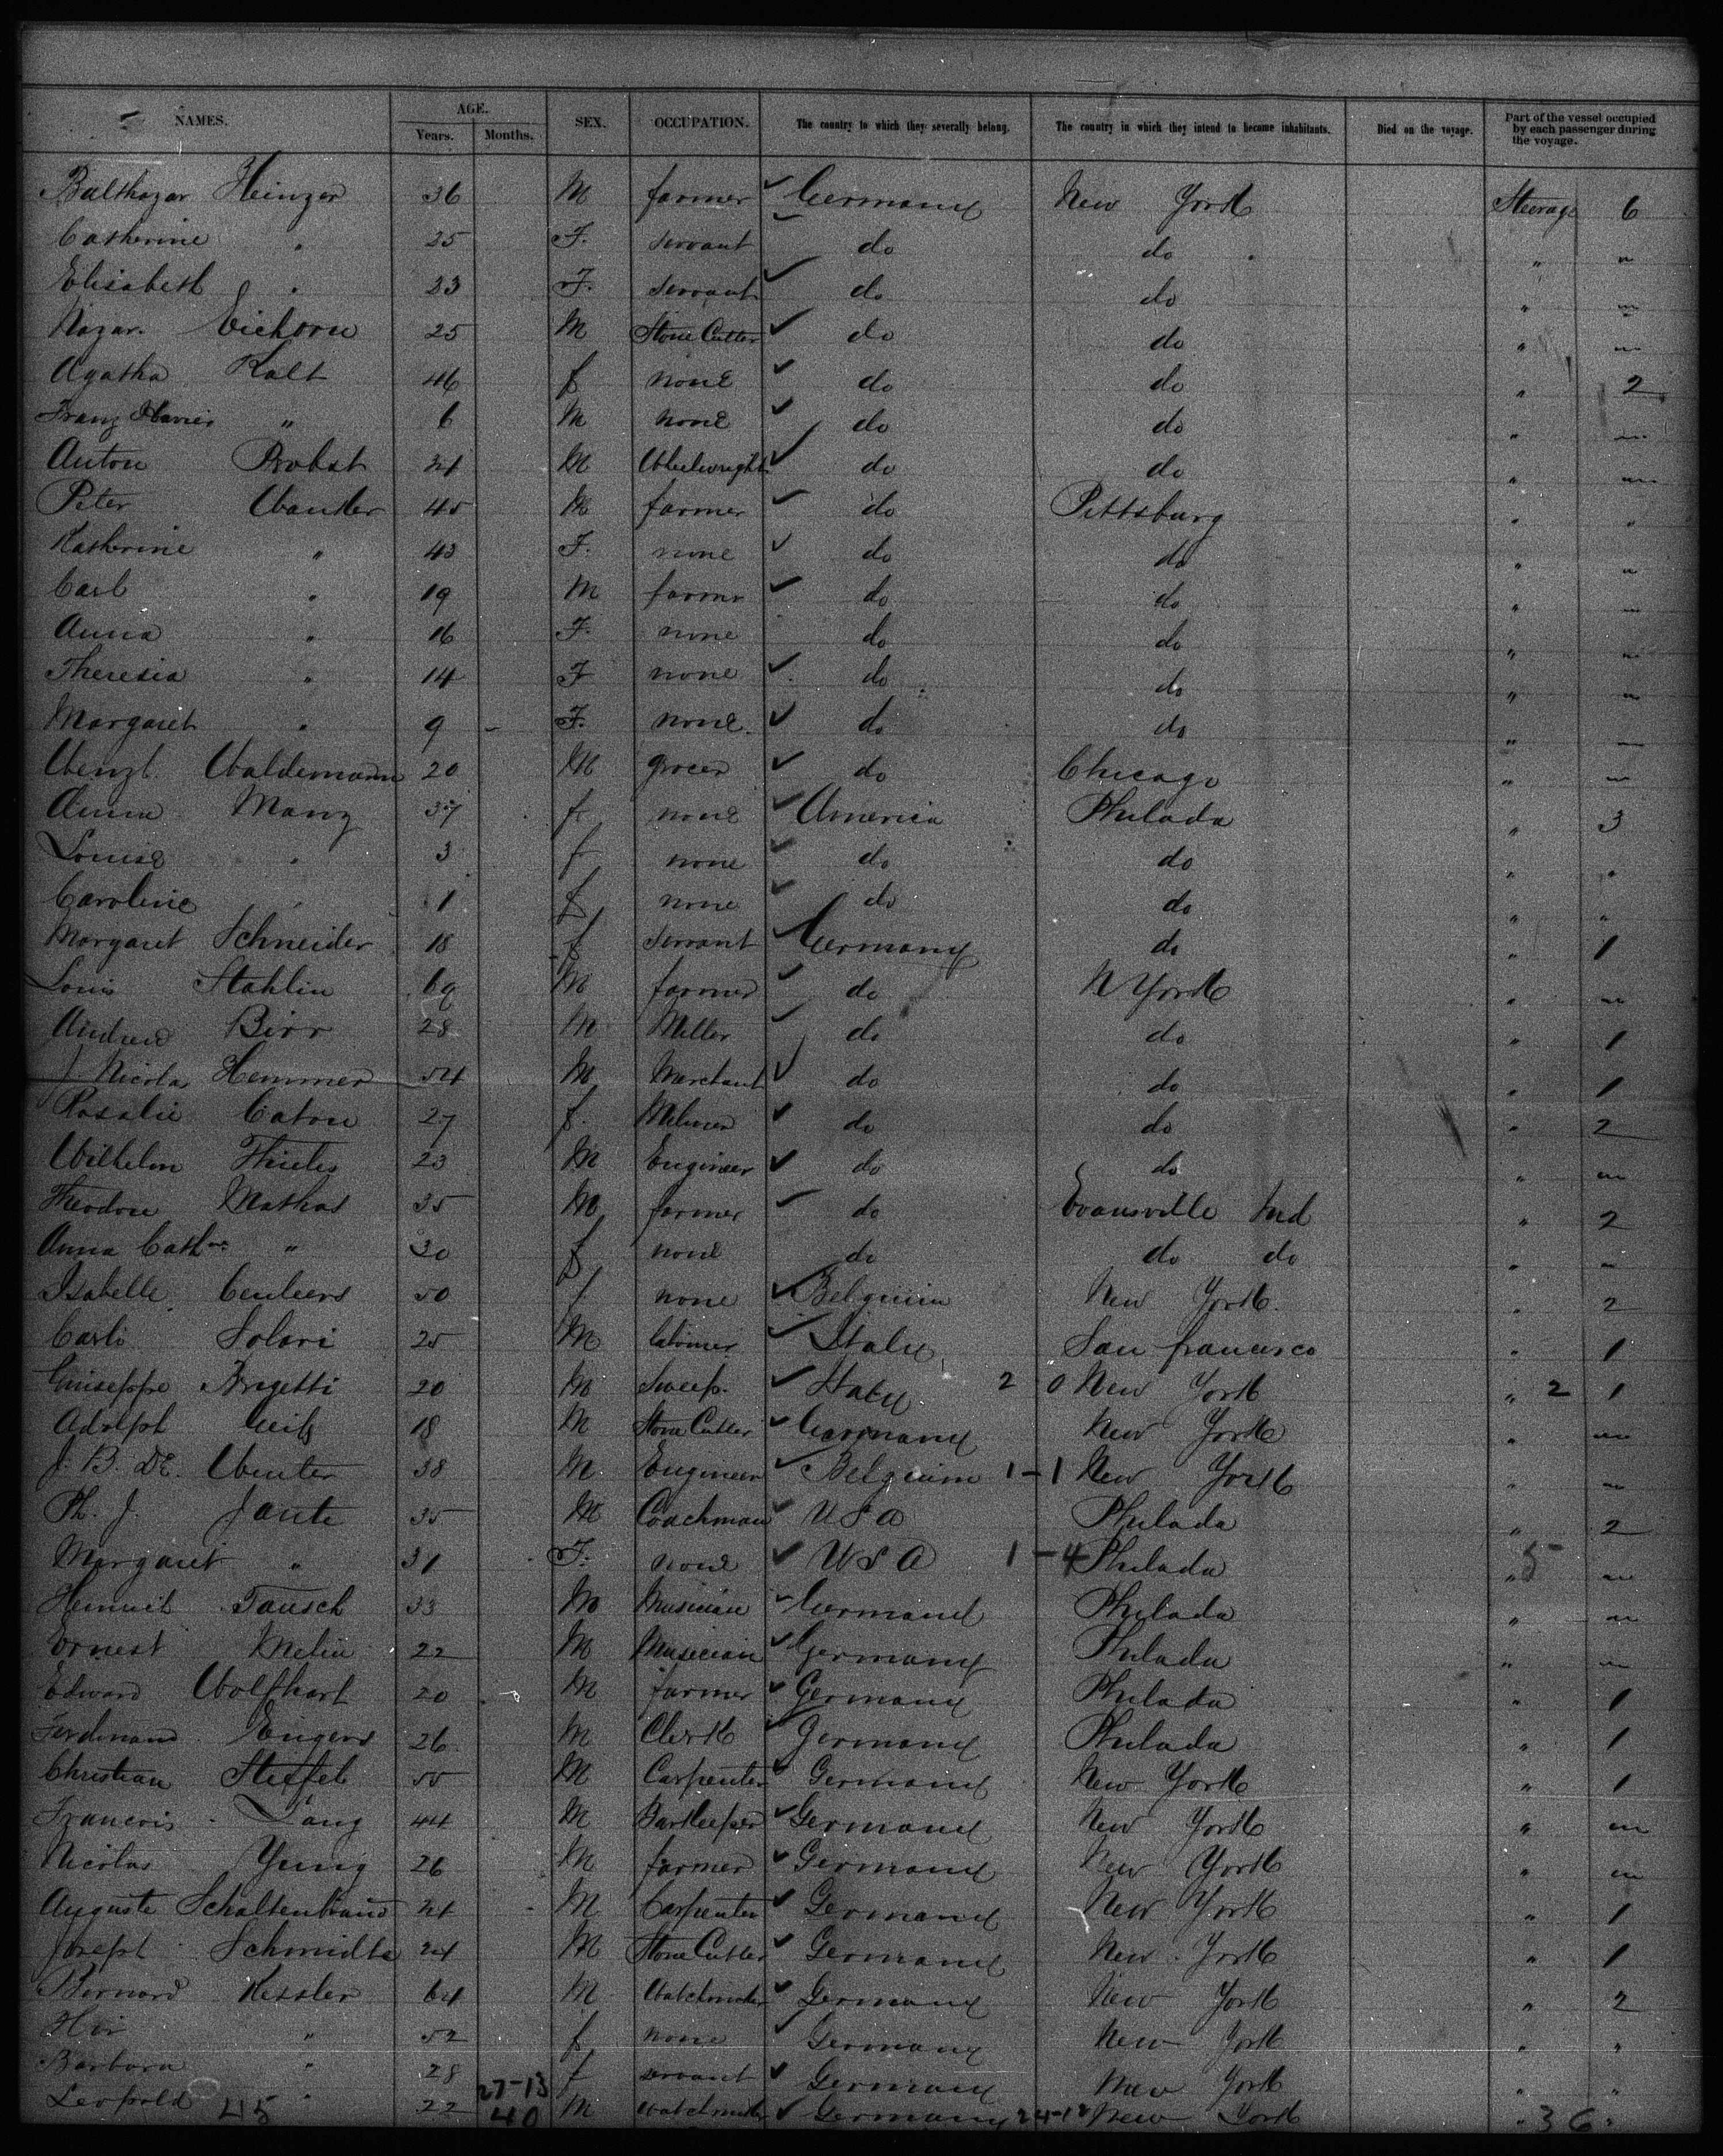 NAMES. AGE. SEX. OCCUPATION. The country to which they severally belong. The country in which they intend to become inhabitants. Died on the voyage. Part of the vessel occupied by each passenger during the voyage.
Years. Months.
Balthazar Heinzer 36 M farmer ✓ Germany New York Steerage 6
Catherine " 25 F. servant do do " "
Elisabeth " 23 F. servant ✓ do do " "
Nazar. Eichorn 25 M Stone Cutter ✓ do do " "
Agatha Kalt 46 f none ✓ do do " 2
Franz Xavier " 6 M none ✓ do do " "
Anton Probst 34 M Wheelwright ✓ do do " "
Peter Wander 45 M farmer ✓ do Pittsburg " "
Katherine " 43 F. none ✓ do do " "
Carl " 19 M farmr ✓ do do " "
Anna " 16 F. none do do " "
Theresia " 14 F none ✓ do do " "
Margaret " 9 F. none. ✓ do do " "
Wenzl. Waldemann 20 M grocer ✓ do Chicago " "
Anna Manz 37 f none ✓ America Philada " 3
Louise " 3 f none ✓ do do " "
Caroline " 1 f none ✓ do do " "
Margaret Schneider 18 f servant ✓ Germany do " 1
Louis Stahlin 69 M farmer ✓ do N York " "
Andrew Birr 28 M Miller ✓ do do " 1
Nicolas Hemmer 54 M Merchant ✓ do do " 1
Rosalie Caton 27 f. ✓ do do " 2
Wilhelm 23 M Engineer ✓ do do " "
Theodore Mathas 35 M farmer ✓ do Evansville Ind " 2
Anna Cath " 30 f none do do do " "
Isabelle Ceuleers 50 f none ✓ Belgium New York. " 2
Carlo Solari 25 M ✓ Italy San francisco " 1
Guiseppe Brigetti 20 M Sweep. ✓ Italy 2 0 New York " 2 1
Adolph 18 M Stone Cutter ✓ Germany New York " "
J. B. DE. Wenter 38 M Engineer ✓ Belgium 1-1 New York " "
Ph. J. Jante 35 M Coachman ✓ U S A Philada " 2
Margaret " 31 F. none ✓ U S A 1-4 Philada " 5 "
Tausch 33 M Musician ✓ Germany Philada " "
Ernest Melin 22 M Musician ✓ Germany Philada " "
Edward Wolfhart 20 M farmer ✓ Germany Philada " 1
Ferdinand Engers 26 M Clerk Germany Philada " 1
Christian Steffel 55 M Carpenter ✓ Germany New York " 1
Francois Lang 44 M Barkeeper ✓ Germany New York " "
Nicolas Yung 26 M farmer ✓ Germany New York " "
Auguste Schaltenbrand 24 M Carpenter ✓ Germany New York " 1
Joseph Schmidte 24 M Stone Cutter ✓ Germany New York " 1
Bernard Kessler 64 M Watchmaker ✓ Germany New York " 2
" 52 f none ✓ Germany New York " "
Barbara " 28 f servant ✓ Germany New York " "
Leopold 45 " 22 27-13 40 M watchmaker ✓ Germany 24-12 New York " 3 6 "